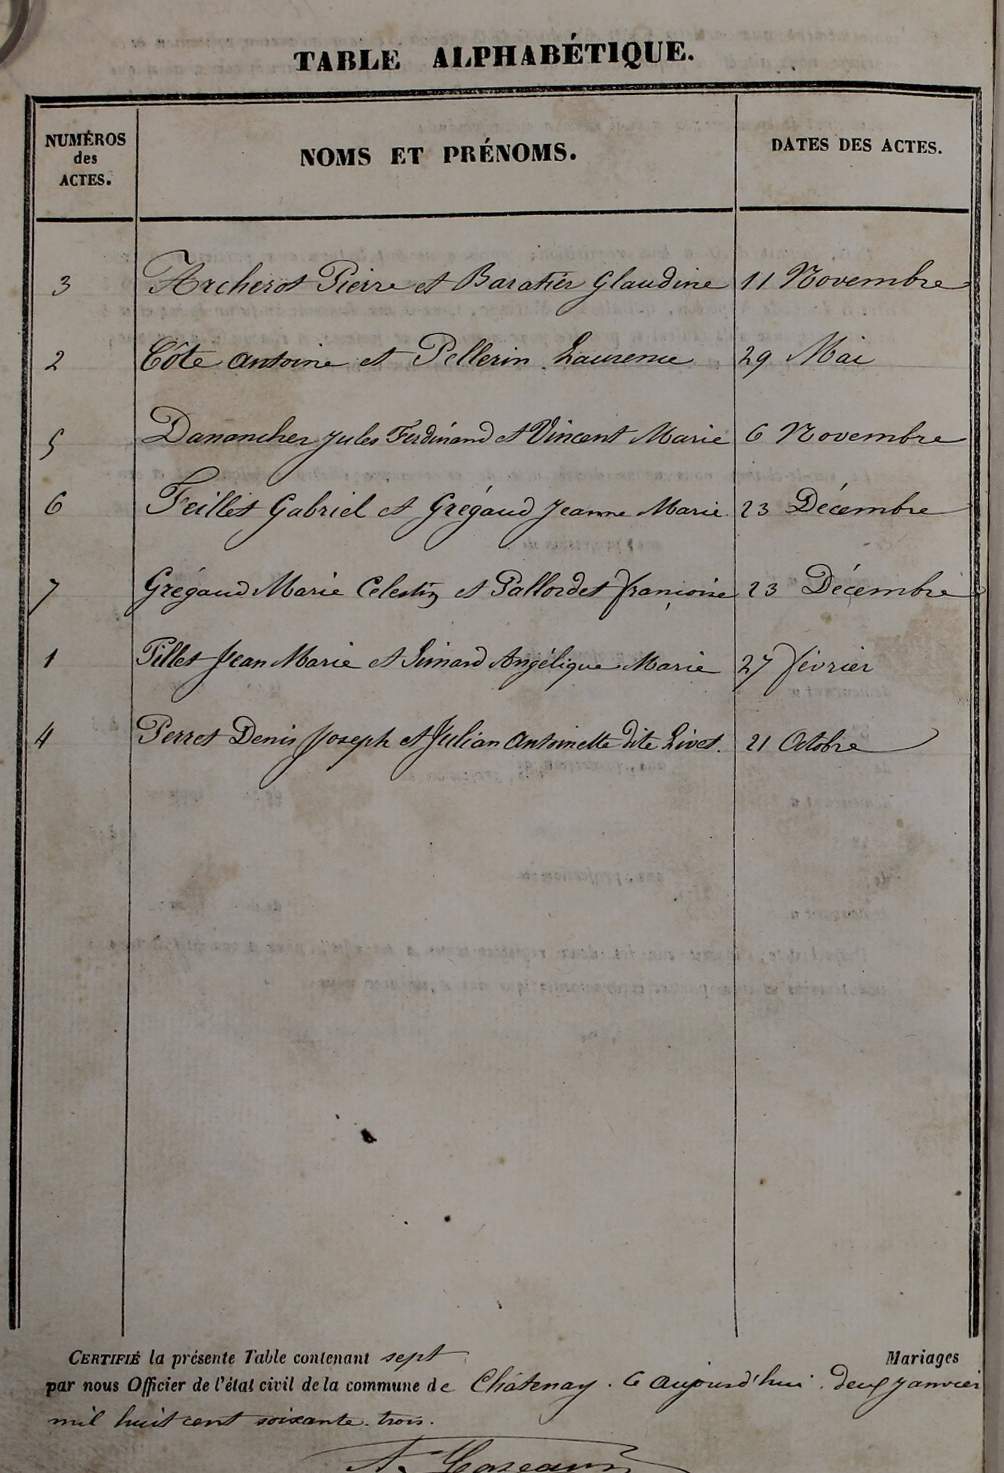 TABLE ALPHABÉTIQUE.
NUMÉROS des ACTES. NOMS ET PRÉNOMS. DATES DES ACTES.
3 Archerot Pierre et Baratier Glaudine 11 Novembre
2 Côte antoine et Pellerin Laurence 29 Mai
5 Danancher Jules Ferdinand et Vincent Marie 6 Novembre
6 Feillet Gabriel et Grégaud Jeanne Marie 23 Décembre
7 Grégaud Marie Celestin et Pallordet françoise 23 Décembre
1 Pillet Jean Marie et Angélique Marie 27 février
4 Perret Denis Joseph et Julian Antoinette dite Livet. 21 Octobre
CERTIFIÉ la présente Table contenant sept Mariages
par nous Officier de l'état civil de la commune de Châtenay. Ce aujourd'hui deux janvier
mil huit cent soixante trois.